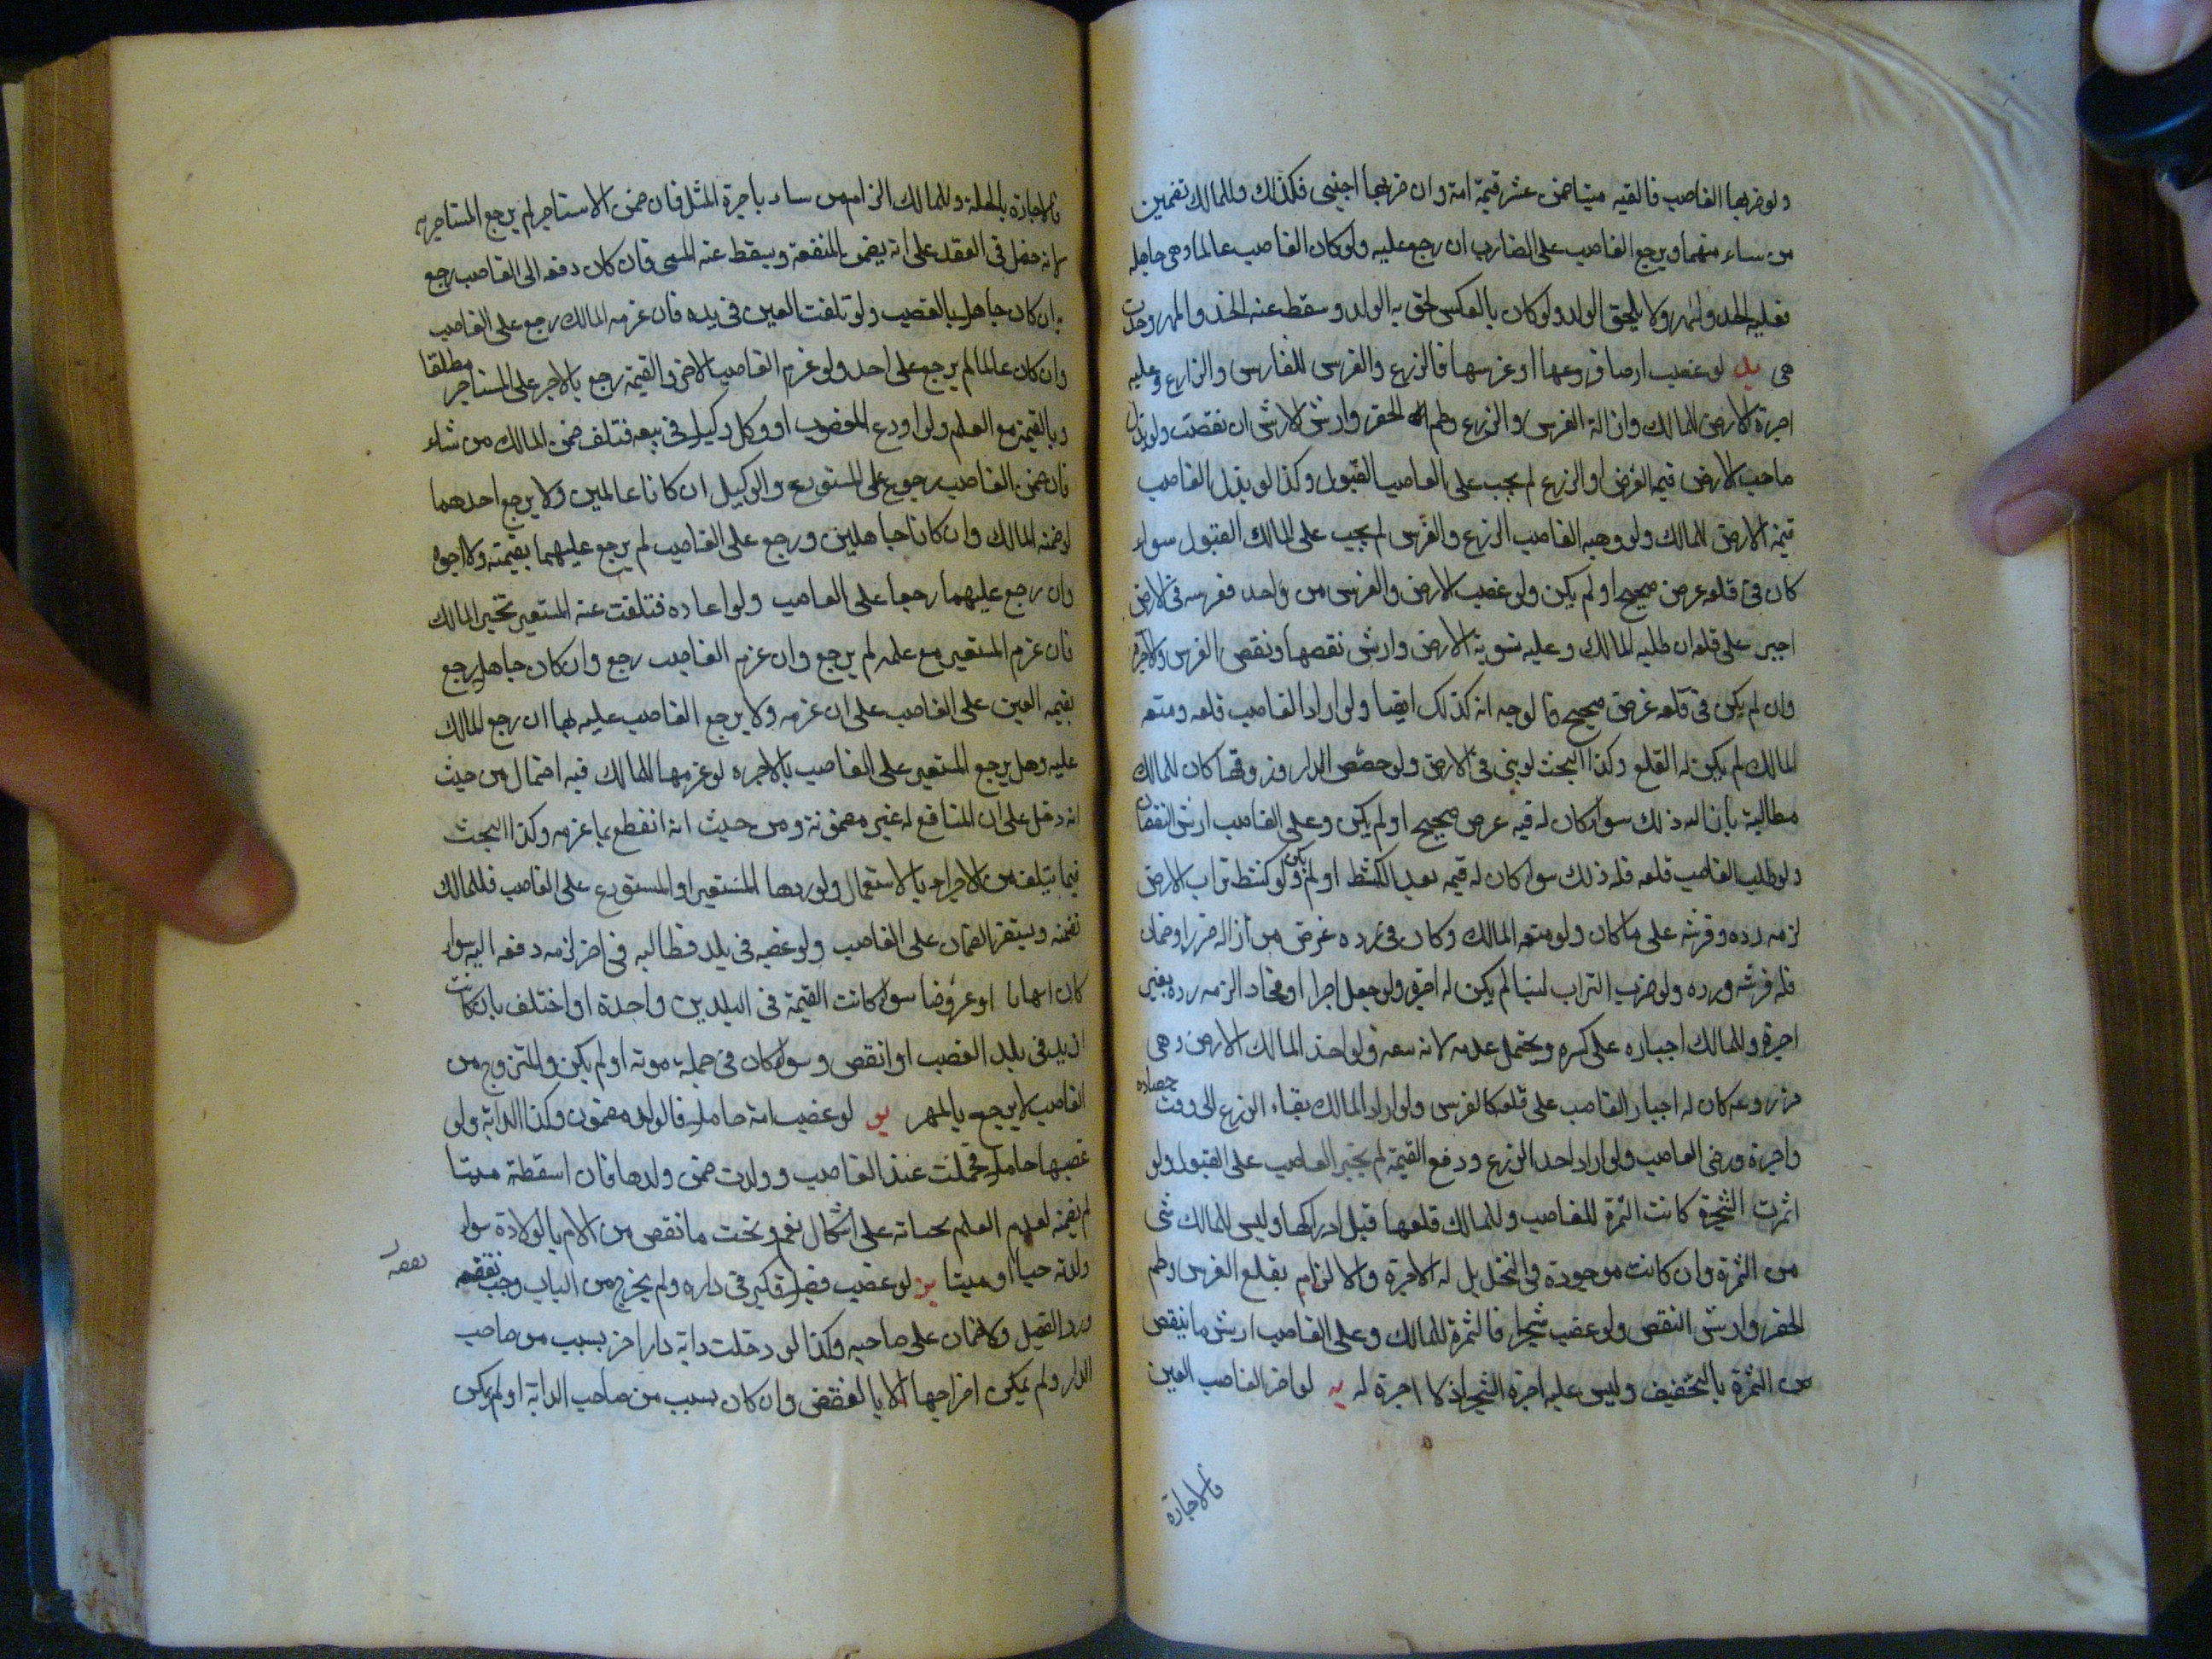 ولو ضربها الغاصب فالقته ميتا ضمن عشر قيمة امة وان ضربها اجنبى فكذلك وللمالك تضمين
من ساء منهما ويرجع الغاصب على الضارب ان رجع عليه ولو كان الغاصب عالما وهى جاهله
فعليه الحد والمهر ولا يلحق الولد ولو كان بالعكس لحق به الولد وسقط عنه الحد والمهر وحدت
هى يد لو غصب ارضا فزرعها او غرسها فالزرع والغرس للغارس والزارع وعليه
اجرة الارض للمالك وازالة الغرس والزرع وطم الحفر وارش الارش ان نقصت ولو بذل
صاحب الارض قيمه الغرس او الزرع لم يجب على الغاصب القبول وكذا لو بذل الغاصب
قيمة الارض للمالك ولو وهبه الغاصب الزرع والغرس لم يجب على المالك القبول سواء
كان فى قلعه غرض صحيح او لم يكن ولو غصب الارض والغرس من واحد فغرسه فى الارض
اجبر على قلعه ان طلبه المالك وعليه تسوية الارض وارش نقصها ونقص الغرس والاجرة
وان لم يكن فى قلعه غرض صحيح فالوجه انه كذلك ايضا ولو اراد الغاصب قلعه ومنعه
المالك لم يكن له القلع وكذا البحث لو بنى فى الارض ولو جصص الدار وزوقها كان للمالك
مطالبة بازاله ذلك سواء كان له فيه غرض صحيح او لم يكن وعلى الغاصب ارش النقصان
ولو طلب الغاصب قلعه فله ذلك سواء كان له قيمه بعد الكشط او لم يكن ولو كشط تراب الارض
لزمه رده وفرشه على ما كان ولو منعه المالك وكان فى رده غرض من ازاله ضرر او ضمان
فله فرشه ورده ولو ضرب التراب لبنا لم يكن له اجرة ولو جعل اجرا او فخارا لزمه رده بغير
اجرة وللمالك اجباره على كسره ويحتمل عدمه لانه سفه ولو اخذ المالك الارض وهى
مزروعه كان له اجبار الغاصب على قلعه كالغرس ولو اراد المالك بقاء الزرع الى وقت حصاده
واجرة ورضى الغاصب ولو اراد احد الزرع ودفع القيمة لم يجبر الغاصب على القبول ولو
اثمرت الشجرة كانت الثمرة للغاصب وللمالك قلعها قبل ادراكها وليس للمالك شى
من الثمرة وان كانت موجودة فى النخل بل له الاجرة والالزام بقلع الغرس وطم
الحفر وارش النقص ولو غصب شجرا فالثمرة للمالك وعلى الغاصب ارش ما ينقص
من الثمرة بالتجفيف وليس عليه اجرة الشجر اذ لا اجرة له يه لو اجر الغاصب العين
فالاجازة
فالاجازة باطلة وللمالك الزام من ساء باجرة المثل فان ضمن الاستاجر لم يرجع المستاجر به
لانه دخل فى العقد على انه يضمن المنفعة ويسقط عنه المسمى فان كان دفعه الى الغاصب رجع
به ان كان جاهلا بالغصب ولو تلفت العين فى يده فان غرمه المالك رجع على الغاصب
وان كان عالما لم يرجع على احد ولو غرم الغاصب الاجر والقيمة رجع بالاجر على المستاجر مطلقا
وبالقيمة مع العلم ولو اودع المغصوب او وكل وكيلا فى بيعه فتلف ضمن المالك من شاء
فان ضمن الغاصب رجع على المستودع والوكيل ان كانا عالمين ولا يرجع احدهما
لو ضمنه المالك وان كانا جاهلين ورجع على الغاصب لم يرجع عليهما بقيمته ولا اجره
وان رجع عليهما رجعا على الغاصب ولو اعاده فتلفت عنه المستعير تخير المالك
فان غرم المستعير مع علمه لم يرجع وان غرم الغاصب رجع وان كان جاهلا رجع
بقيمه العين على الغاصب على ان غرمه ولا يرجع الغاصب عليه بها ان رجع المالك
عليه وهل يرجع المستعير على الغاصب بالاجره لو غرمها للمالك فيه احتمال من حيث
انه دخل على ان المنافع له غير مضمونة ومن حيث انه انقطع بما غرمه وكذا البحث
فيما يتلف من الاجزاء بالاستعمال ولو ردها المستعير او المستودع على الغاصب فللمالك
تضمنه ويستقر الضمان على الغاصب ولو غصبه فى بلد فطالبه فى اخر لزمه دفعه اليه سواء
كان اثمانا او عروضا سواء كانت القيمة فى البلدين واحدة او اختلف بان كانت
ازيد فى بلد الغصب او انقص وسواء كان فى حمله مونه او لم يكن والمتزوج من
الغاصب لا يرجع بالمهر يو لو غصب امة حاملا فالولد مضمون وكذا الدابة ولو
غصبها حاملا فحملت عند الغاصب وولدت ضمن ولدها فان اسقطة ميتا
لم يضمنه لعدم العلم بحياته على اشكال نعم يجب ما نقص من الام بالولادة سواء
ولدته حيا او ميتا يز لو غصب فصيلا فكبر فى داره ولم يخرج من الباب وجب نقضه
ورد الفصيل ولا ضمان على صاحبه وكذا لو دخلت دابة دار اخر بسبب من صاحب
الدار ولم يمكن اخراجها الا بالنقض وان كان بسبب من صاحب الدابة او لم يكن